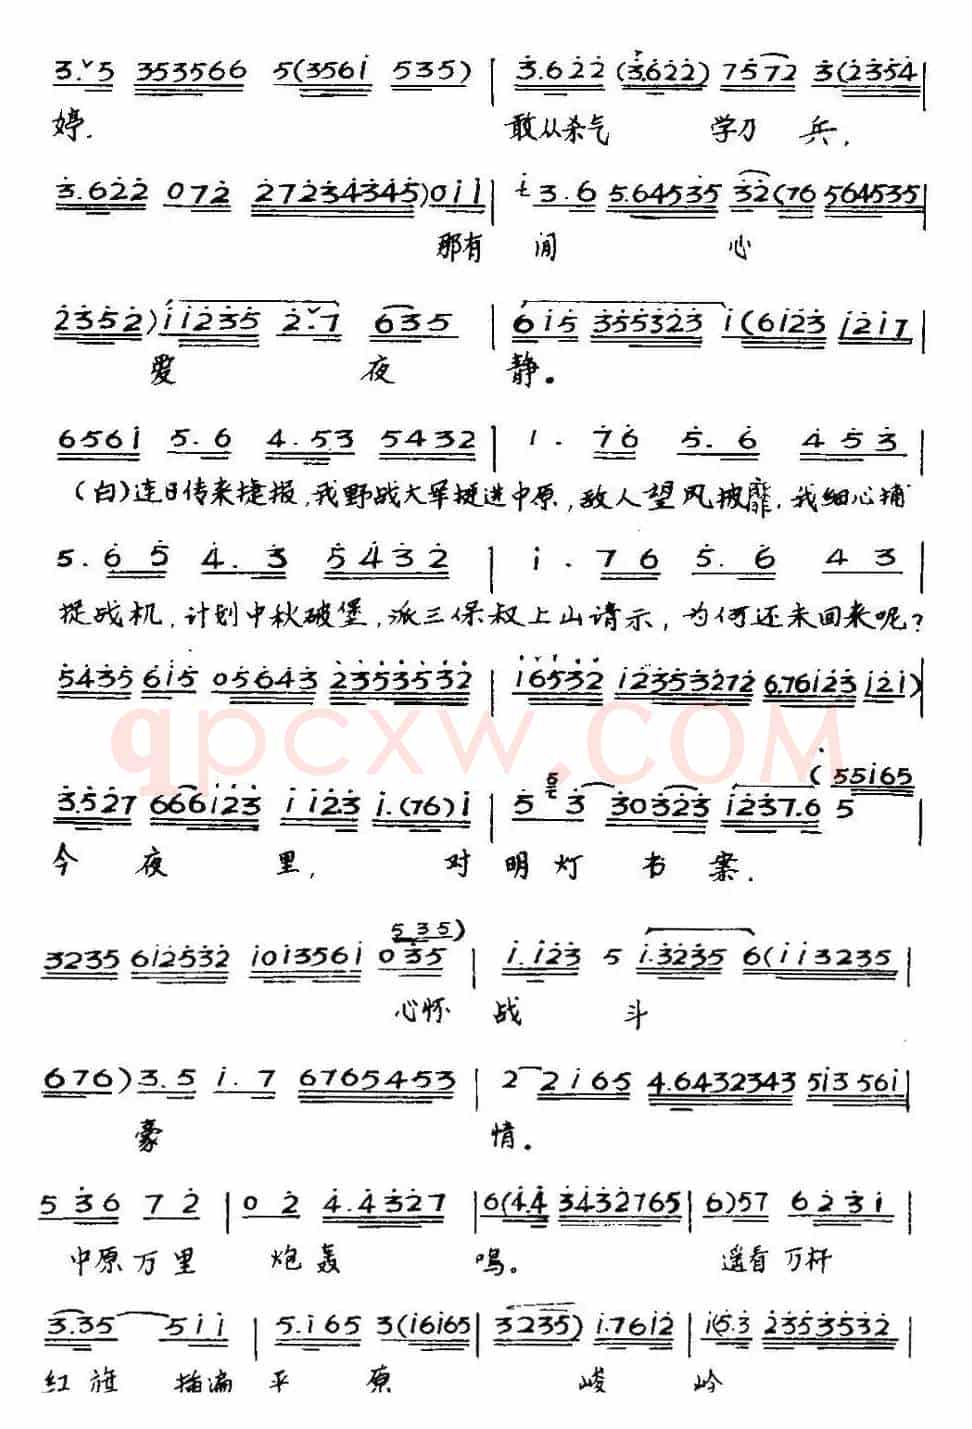 3.ˇ5 353566 5(356i 535) | 3.622 (3.622) 7572 3(2354
婷. 敢从杀气 学刀兵,
3.622 072 27234345)0ii | 3.6 5.64535 32(76 564535
那有 闲 心
2352)ii235 2.ˇ7 635 | 6i5 355323 i(6i23 i2i7
爱 夜 静。
656i 5.6 4.53 5432 | i. 76 5.6 453 |
(白)连日传来捷报,我野战大军挺进中原,敌人望风披靡.我细心捕
5.65 4.3 5432 | i. 76 5.6 43 |
捉战机,计划中秋破堡,派三保叔上山请示,为何还未回来呢?
5435 6i5 05643 2353532 | i6532 i2353272 6.76i23 i2i)
qpcxw.COM
(55i65
3527 666i23 ii23 i.(76)i | 5 3 30323 i237.6 5 |
今 夜 里, 对 明 灯 书 案.
535)
3235 6i2532 i0i356i 035 | i.i23 5 i.3235 6(ii3235 |
心怀 战 斗
676)3.5 i.7 6765453 | 2 2i65 4.6432343 5i356i |
豪 情.
536 72 | 02 4.4327 | 6(4.4 3432765 | 6)57 623i |
中原万里 炮轰 鸣。 遥看万杆
3.35 5ii | 5.i65 3(i6i65 | 3235) i.76i2 | i(5.3 2353532 |
红旗 插遍 平 原 峻 岭